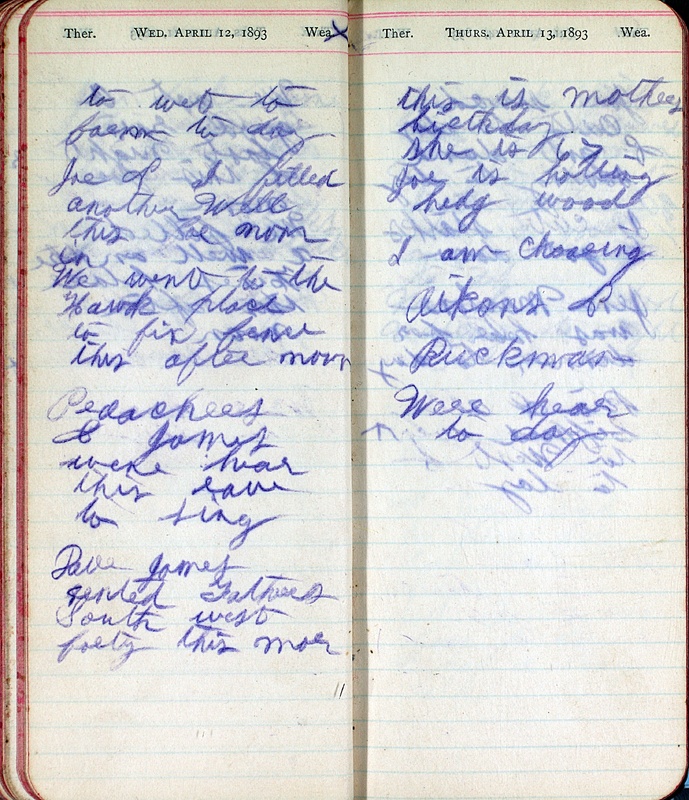 Ther. WED. APRIL 12, 1893 Wea.
to wet to
farm to day
Joe & I filled
another Well
this foe noon
in
We went to the
Hawk place
to fix fence
this after noon
& Jones
were hear
this eave
to sing
Dave Jones
rented Fathers
South west
forty this mor
Ther. THURS. APRIL 13, 1893 Wea.
this is mothers
birthday
she is 67
Joe is halling
hedg wood
I am choreing
Aikons &
Ruckman
Were hear
to day